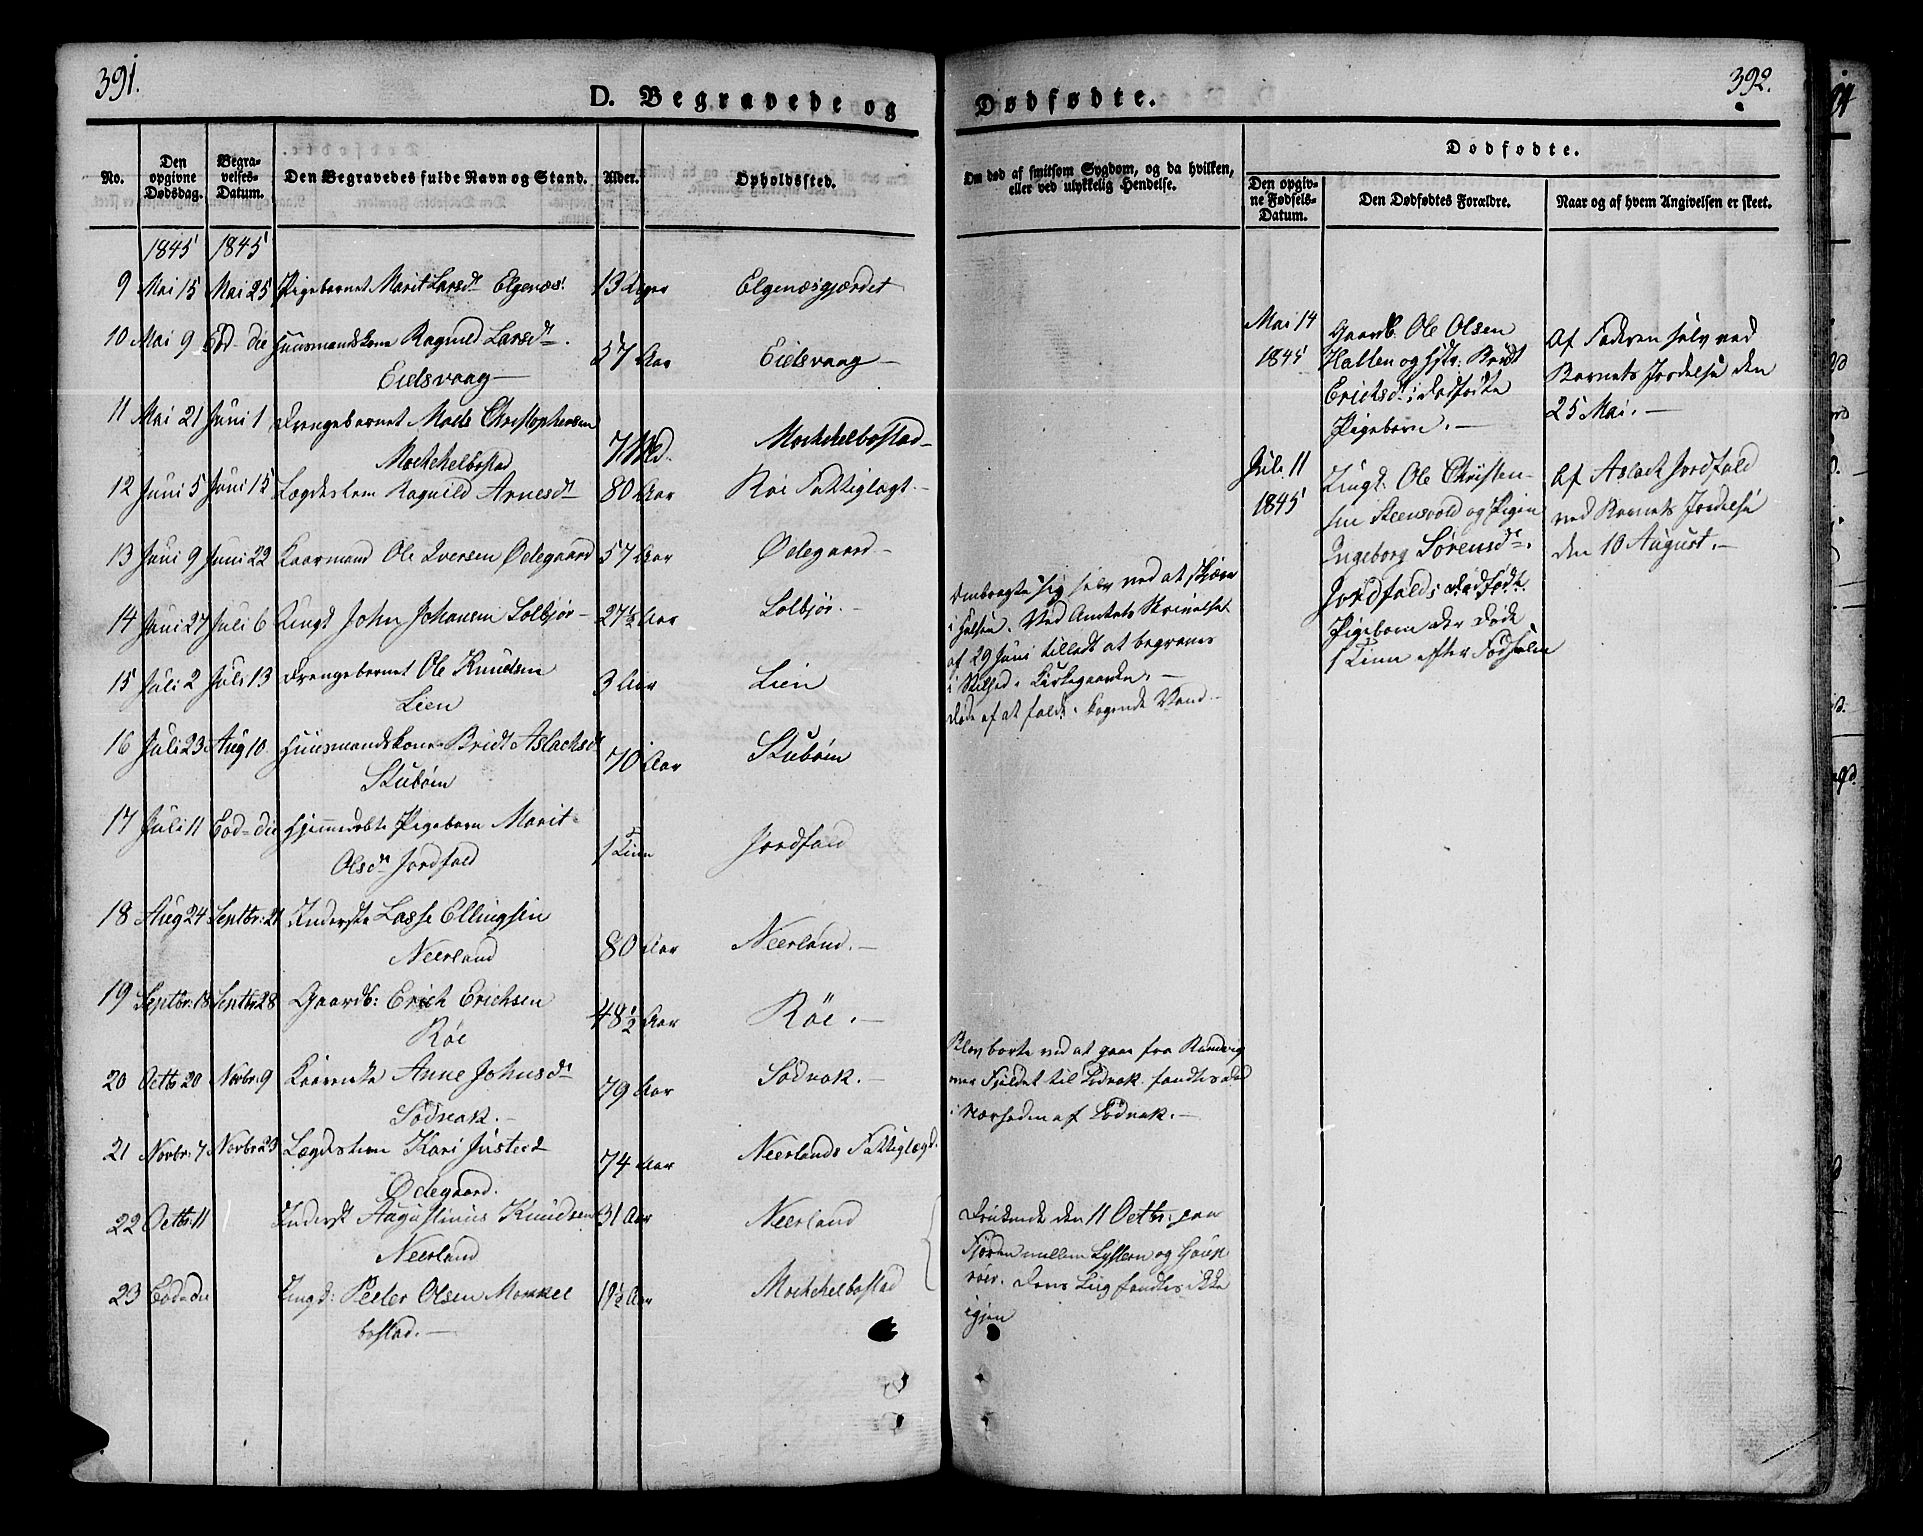 391.
D. Begravede og
No.
Den opgivne Dødsdag.
Begravelses-Datum.
Den Begravedes fulde Navn og Stand.
Alder.
Opholdssted.
1845 1845
9 Mai 15 Mai 25 Pigebarnet Marit Larsdr Elgenæs 13 Dager Elgenæsgjærdet
10 Mai 9 Eod. die Huusmandskone Ragnild Larsdr
Eidsvaag 57 Aar Eidsvaag
11 Mai 21 Juni 1 Drengebarnet Mads Christophersen
Mochelbostad Mochelbostad
12 Juni 5 Juni 15 Lægdslem Ragnild Arnesdr 80 Aar Røe Fattiglægt
13 Juni 9 Juni 22 Kaarmand Ole Iversen Ødegaard 57 Aar Ødegaard
14 Juni 27 Juli 6 Ungk. John Johansen Solbjør 27½ Aar Solbjør.
15 Juli 2 Juli 13 Drengebarnet Ole Knudsen
Lien 3 Aar Lien
16 Juli 23 Aug 10. Huusmandskone Bridt Aslachsdr
Stubøen 70 Aar Stubøen
17 Juli 11 Eod=die Hjemmedøbte Pigebarn Marit
Olsdr Jordfald 1 Time Jordfald
18 Aug 24 Septbr: 21 Inderste Lasse Ellingsen
Neerland 80 Aar Neerland.
19 Septbr: 18 Septbr 28 Gaardb: Erich Erichsen
Røe 48½ Aar Røe.
20 Octbr 20 Novbr: 9 Kaarenke Anne Johnsdr
Sødvak. 79 Aar Sødvak.
21 Novbr: 7 Novbr 23 Lægdslem Kari Justsd
Ødegaard. 74 Aar Neerlands Fattiglægd.
22 Octbr: 11 Inderst Augustinus Knudsen 31 Aar Neerland
Neerland
23 Eod=die Ungk: Peder Olsen Mochel
bostad. 19½ Aar Mochelbostad
392.
Dødfødte.
Om død af smitsom Sygdom, og da hvilken,
eller ved ulykkelig Hendelse.
Dødfødte.
Den opgivne Fødsels-Datum.
Den Dødfødtes Forældre.
Naar og af hvem Angivelsen er skeet.
Ombragte sig selv ved at skjære
i Halsen. Ved Amtets Skrivelse
af 29 Juni tilladt at begraves
i Stilhed i Kirkegaarden.
Døde af at falde i kogende Vand.
Blev borte ved at gaae fra Randvig
over Fjeldet til Sødvak. fandtes død
i Nærheden af Sødvak.
Druknede den 11 Octbr: paa
Fjorden mellem og
. Deres Liig fandtes ikke
igjen
Mai 14
1845
Gaardb. Ole Olsen
Hatlen og Hstr: Bridt
Erichsdr: dødfødte
Pigebarn.
Af Faderen selv ved
Barnets Jordelse den
25 Mai.
Juli 11
1845
Ungk: Ole Christen-
sen Steensvold og Pigen
Ingeborg Sørensdr.
Jordfald: dødfødte
Pigebarn der døde
1 Time efter Fødselen
Af Aslach Jordfald
ved Barnets Jordelse
den 10 August.